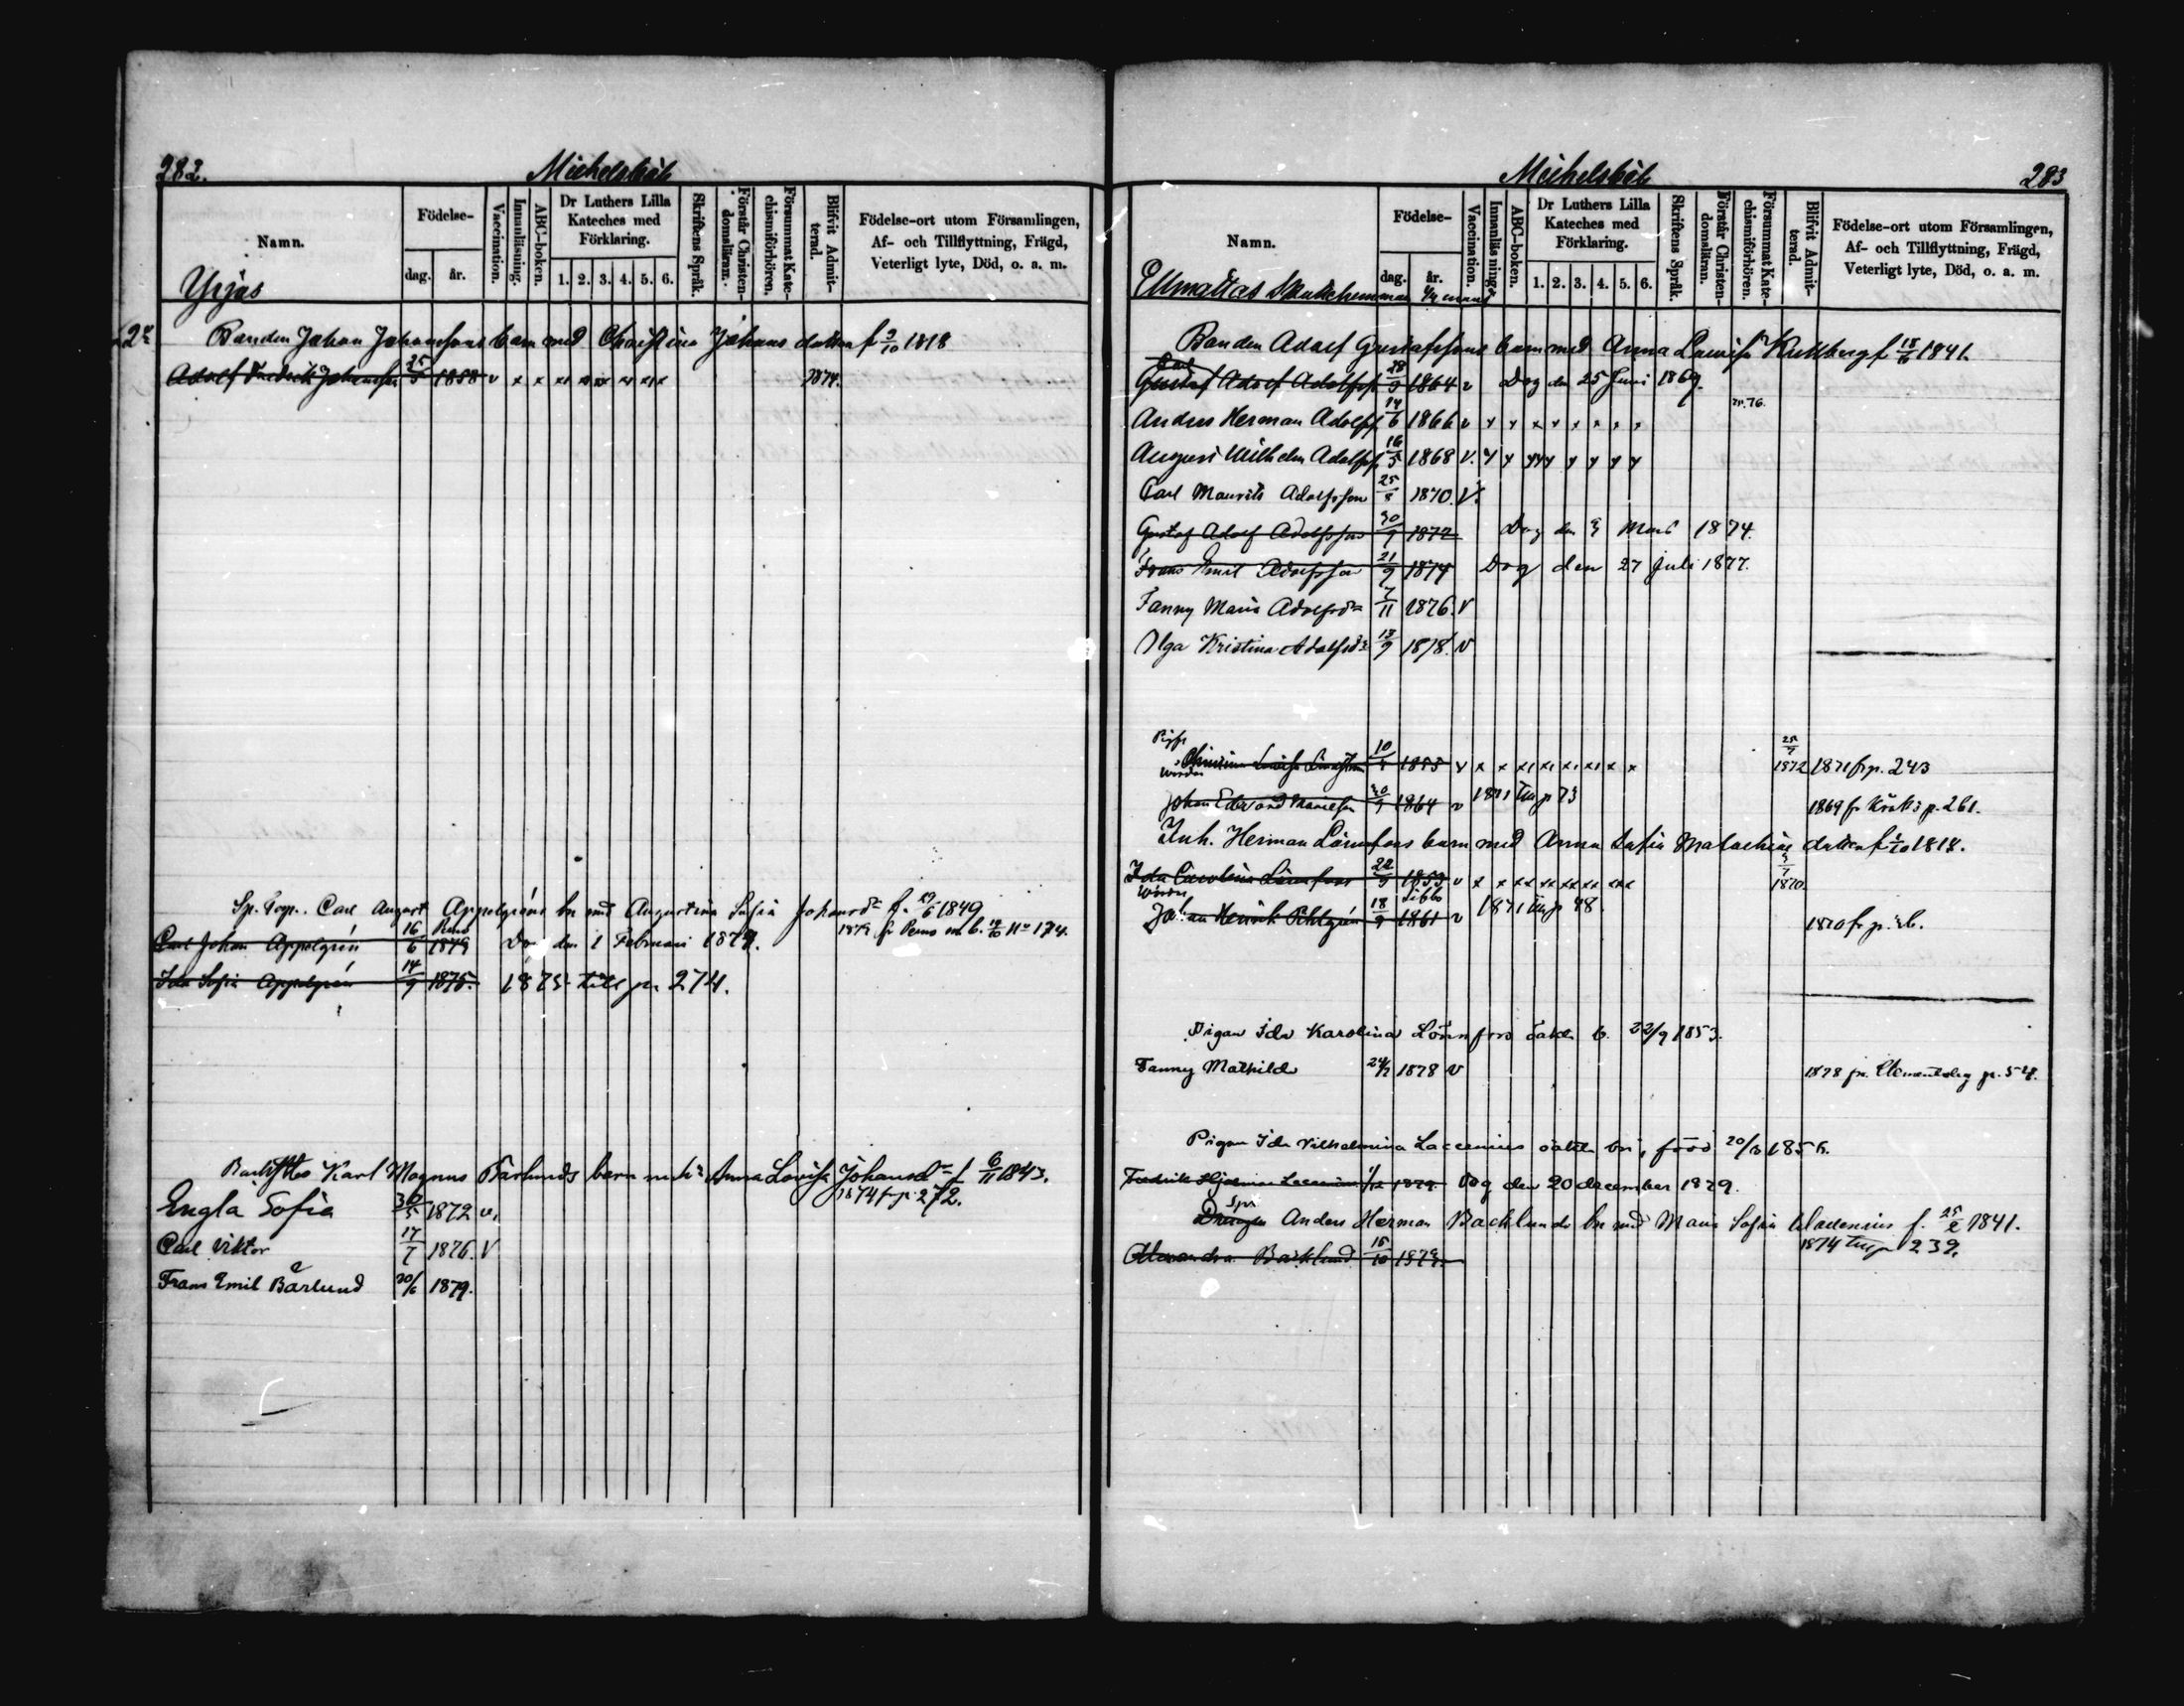 282.
Michelsböle
Namn.
Födelse-
dag. år.
Vaccination.
Innanläsning.
ABC-boken.
Dr Luthers Lilla Kateches med Förklaring.
1. 2. 3. 4. 5. 6.
Skriftens Språk.
Förstår Christen-domsläran.
Försummat Kate-chismiförhören.
Blifvit Admit-terad.
Födelse-ort utom Församlingen,
Af- och Tillflyttning, Frägd,
Veterligt lyte, Död, o. a. m.
Yrjas
Bonden Johan Johanssons barn med Christina Johans dotter f 1818
Adolf Fredrik Johansson 25/5 1858 v x x x1 x x x x1x 1874.
Sp. Torp. Carl August Appelgréns bn med Augustina Sofia Johansdr f. 1849
Carl Johan Appelgrén 16/6 Perno 1879 Dog den 1 Februari 1879. 1879 fr Perno
Ida Sofia Appelgrén 14/9 1875. 1875 till p. 274.
Karl Magnus Bärlunds barn m. h. Anna Lovisa Johansdr f 6/11 1843.
Engla Sofia 30/5 1872 v. 1874 fr p 272.
Carl Viktor 17/7 1876. V
Frans Emil Bärlund 20/6 1879.
Michelsböle
283
Namn.
Födelse-
dag. år.
Vaccination.
Innanläsning.
ABC-boken.
Dr Luthers Lilla Kateches med Förklaring.
1. 2. 3. 4. 5. 6.
Skriftens Språk.
Förstår Christen-domsläran.
Försummat Kate-chismiförhören.
Blifvit Admit-terad.
Födelse-ort utom Församlingen,
Af- och Tillflyttning, Frägd,
Veterligt lyte, Död, o. a. m.
Ellmattas Skattehemman 1/4 mant
Bonden Adolf Gustafssons barn med Anna Lovisa f 18/6 1841.
Gustaf Adolf Adolfss 28/9 1864 v Dog den 25 Juni 1869.
Anders Herman Adolfs 14/6 1866 v x x x x x x x x
August Wilhelm Adolfss 16/5 1868 V. y y yyy y y y y
Carl Maurits Adolfsson 25/8 1870. V.
Gustaf Adolf Adolfsson 30/9 1872 Dog den 9 Mars 1874.
Frans Emil Adolfsson 21/9 1874 Dog den 27 Juli 1877.
Fanny Maria Adolfsdr 7/11 1876. V
Olga Kristina Adolfsdr 13/9 1878. V
Christina Lovisa 10/8 1855 v x x x1 x1 x1 x1 x x 1872 1871 fr p. 243
Johan Edvard 30/9 1864 v 1871 till p 73 1869 fr p. 261.
Inh. Herman Lönnfors barn med Anna Sofia Malachias dotter f 1818.
Ida Carolina Lönnfors 22/9 1853 v x x xx xx xx xx 1870.
Johan Henrik 18/9 Sibbo 1861 v 1871 till p 48. 1870 fr p.
Pigan Ida Karolina Lönnfors oäkta b. 22/9 1853.
Fanny Mathilda 1878 V 1878 fr. p. 54.
Pigan Ida Vilhelmina Laccenius oäkta bn, född 1856.
Fredrik Hjalmar Laccenius 1879. Dog den 20 december 1879.
Anders Herman Backlunds bn med Maria Sofia f. 25/2 1841.
Alexandra Backlund 15/10 1873. 1874 till p 239.